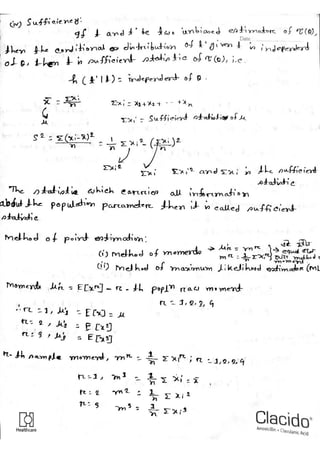 (iv) Sufficiency:
If t and t' be two unbiased estimators of τ(θ),
Date
then the conditional distribution of t' given t is independent
of θ, then t is sufficient statistic of τ(θ), i.e.
h (t'|t) = independent of θ.
x̄ = Σxi/n   Σxi = x1+x2+ --- +xn
μ   Σxi = Sufficient statistic of μ
S² = Σ(xi-x̄)²/n = 1/n Σxi² - (Σxi/n)²
Σxi²   Σxi   Σxi² and Σxi is the sufficient
statistic
"The statistic which contains all information
about the population parameter then it is called sufficient
statistic
Method of point estimation:
(i) method of moments → μ'r = mr
mr = 1/n Σxir
(ii) method of maximum likelihood estimator (ML
Moments μ'r = E[xr] - r - th popln raw moment
r = 1, 2, 3, 4
∴ r = 1, μ'1 = E[x] = μ
r = 2, μ'2 = E[x²]
r = 3, μ'3 = E[x³]
r-th sample moment, mr = 1/n Σxir ; r = 1, 2, 3, 4
r = 1, m1 = 1/n Σxi = x̄
r = 2 m2 = 1/n Σxi²
r = 3 m3 = 1/n Σxi³
Healthcare
Clacido
Amoxicillin + Clavulanic Acid